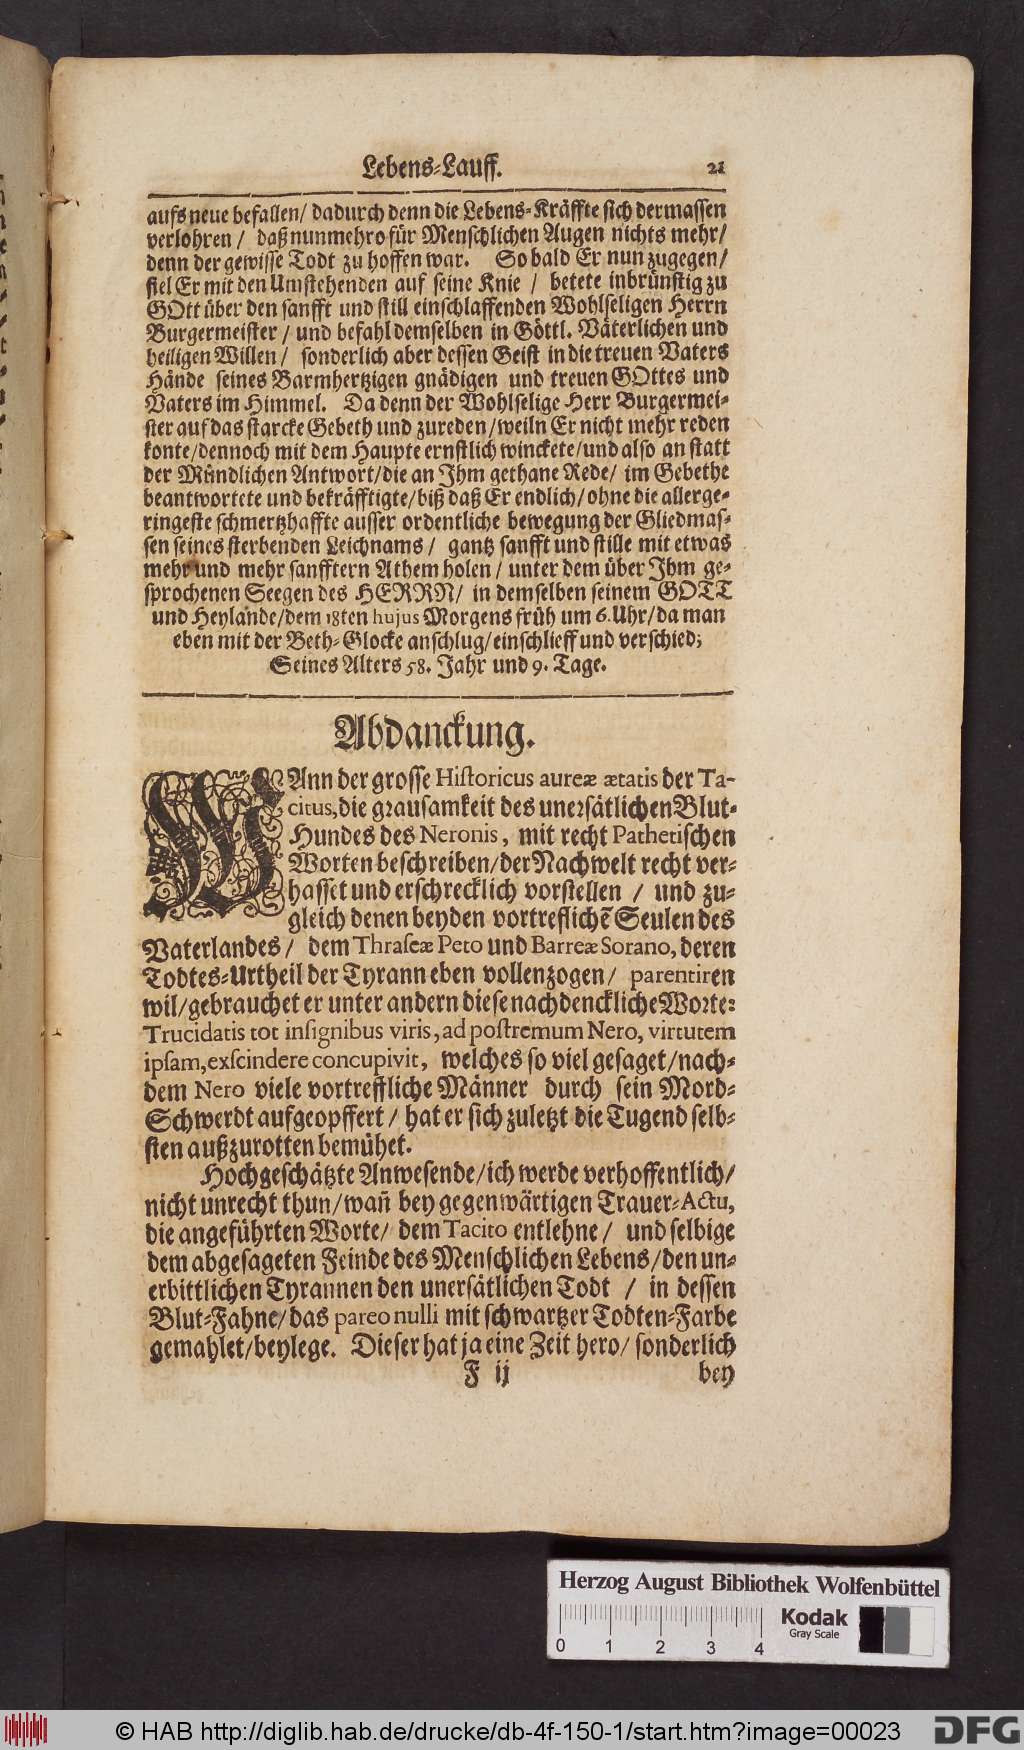 Lebens-Lauff. 21
aufs neue befallen/ dadurch denn die Lebens-Kräffte sich dermassen
verlohren / daß nunmehro für Menschlichen Augen nichts mehr/
denn der gewisse Todt zu hoffen war. So bald Er nun zugegen/
fiel Er mit den Umstehenden auf seine Knie / betete inbrünstig zu
GOtt über den sanfft und still einschlaffenden Wohlseligen Herrn
Burgermeister / und befahl demselben in Göttl. Väterlichen und
heiligen Willen / sonderlich aber dessen Geist in die treuen Vaters
Hände seines Barmhertzigen gnädigen und treuen GOttes und
Vaters im Himmel. Da denn der Wohlselige Herr Burgermei-
ster auf das starcke Gebeth und zureden/weiln Er nicht mehr reden
konte/dennoch mit dem Haupte ernstlich winckete/und also an statt
der Mündlichen Antwort/die an Ihm gethane Rede/ im Gebethe
beantwortete und bekräfftigte/biß daß Er endlich/ohne die allerge-
ringeste schmertzhaffte ausser ordentliche bewegung der Gliedmas-
sen seines sterbenden Leichnams / gantz sanfft und stille mit etwas
mehr und mehr sanfftern Athem holen / unter dem über Ihm ge-
sprochenen Seegen des HERRN/ in demselben seinem GOTT
und Heylande/dem 18ten hujus Morgens früh um 6. Uhr/da man
eben mit der Beth-Glocke anschlug/einschlieff und verschied;
Seines Alters 58. Jahr und 9. Tage.
Abdanckung.
WAnn der grosse Historicus aureæ ætatis der Ta-
citus, die grausamkeit des unersätlichen Blut-
Hundes des Neronis, mit recht Pathetischen
Worten beschreiben/der Nachwelt recht ver-
hasset und erschrecklich vorstellen / und zu-
gleich denen beyden vortreflichẽ Seulen des
Vaterlandes / dem Thraseæ Peto und Barreæ Sorano, deren
Todtes-Urtheil der Tyrann eben vollenzogen / parentiren
wil/gebrauchet er unter andern diese nachdenckliche Worte:
Trucidatis tot insignibus viris, ad postremum Nero, virtutem
ipsam, exscindere concupivit, welches so viel gesaget/nach-
dem Nero viele vortreffliche Männer durch sein Mord-
Schwerdt aufgeopffert / hat er sich zuletzt die Tugend selb-
sten außzurotten bemühet.
Hochgeschätzte Anwesende/ich werde verhoffentlich/
nicht unrecht thun/wañ bey gegenwärtigen Trauer-Actu,
die angeführten Worte/ dem Tacito entlehne / und selbige
dem abgesageten Feinde des Menschlichen Lebens/den un-
erbittlichen Tyrannen den unersätlichen Todt / in dessen
Blut-Fahne/das pareo nulli mit schwartzer Todten-Farbe
gemahlet/beylege. Dieser hat ja eine Zeit hero/ sonderlich
F ij bey
Herzog August Bibliothek Wolfenbüttel
0 1 2 3 4
Kodak
Gray Scale
© HAB http://diglib.hab.de/drucke/db-4f-150-1/start.htm?image=00023
DFG